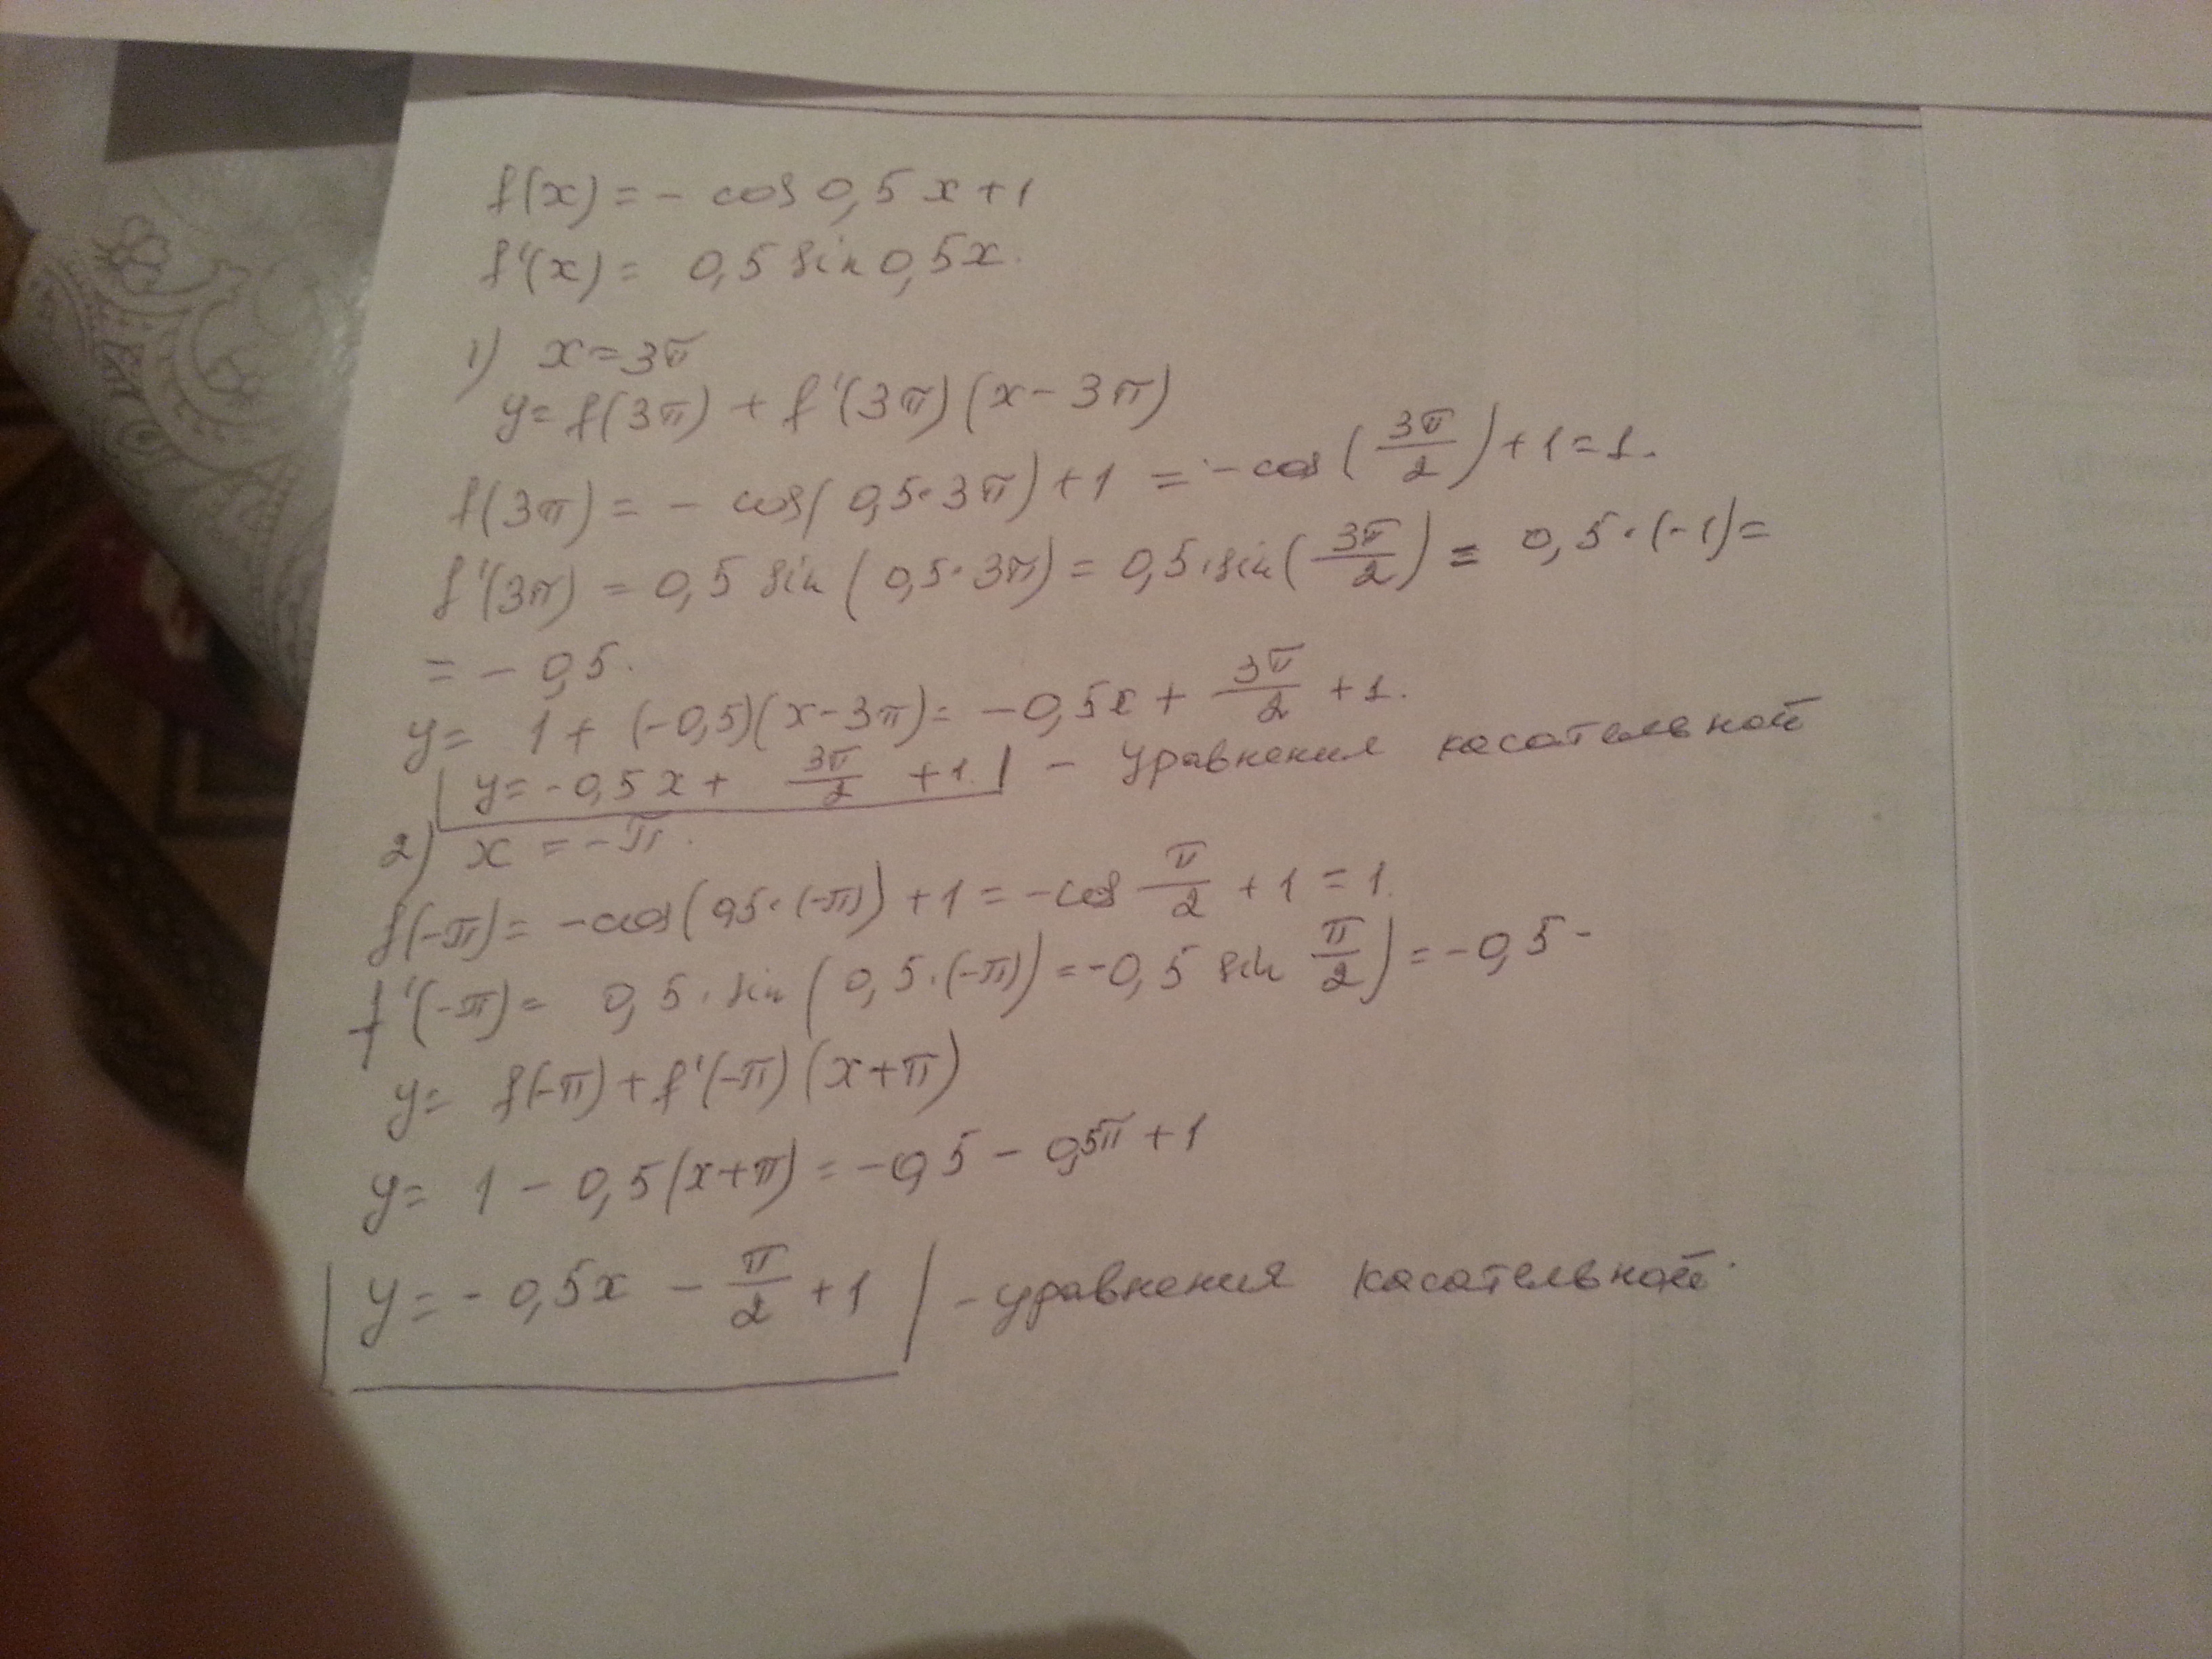 f(x) = - cos 0,5 x + 1
f'(x) = 0,5 sin 0,5x.
1) x = 3π
y = f(3π) + f'(3π) (x - 3π)
f(3π) = - cos( 0,5 · 3π) + 1 = - cos ( 3π/2 ) + 1 = 1.
f'(3π) = 0,5 sin ( 0,5 · 3π) = 0,5 · sin ( 3π/2 ) = 0,5 · (-1) =
= - 0,5.
y = 1 + (-0,5)(x - 3π) = -0,5x + 3π/2 + 1.
y = -0,5 x + 3π/2 + 1. - уравнения касательной
2) x = -π.
f(-π) = -cos( 0,5 · (-π)) + 1 = -cos π/2 + 1 = 1.
f'(-π) = 0,5 · sin ( 0,5 · (-π)) = -0,5 sin π/2 ) = -0,5 -
y = f(-π) + f'(-π) (x + π)
y = 1 - 0,5 (x + π) = -0,5 - 0,5π + 1
y = - 0,5x - π/2 + 1 - уравнения касательной.